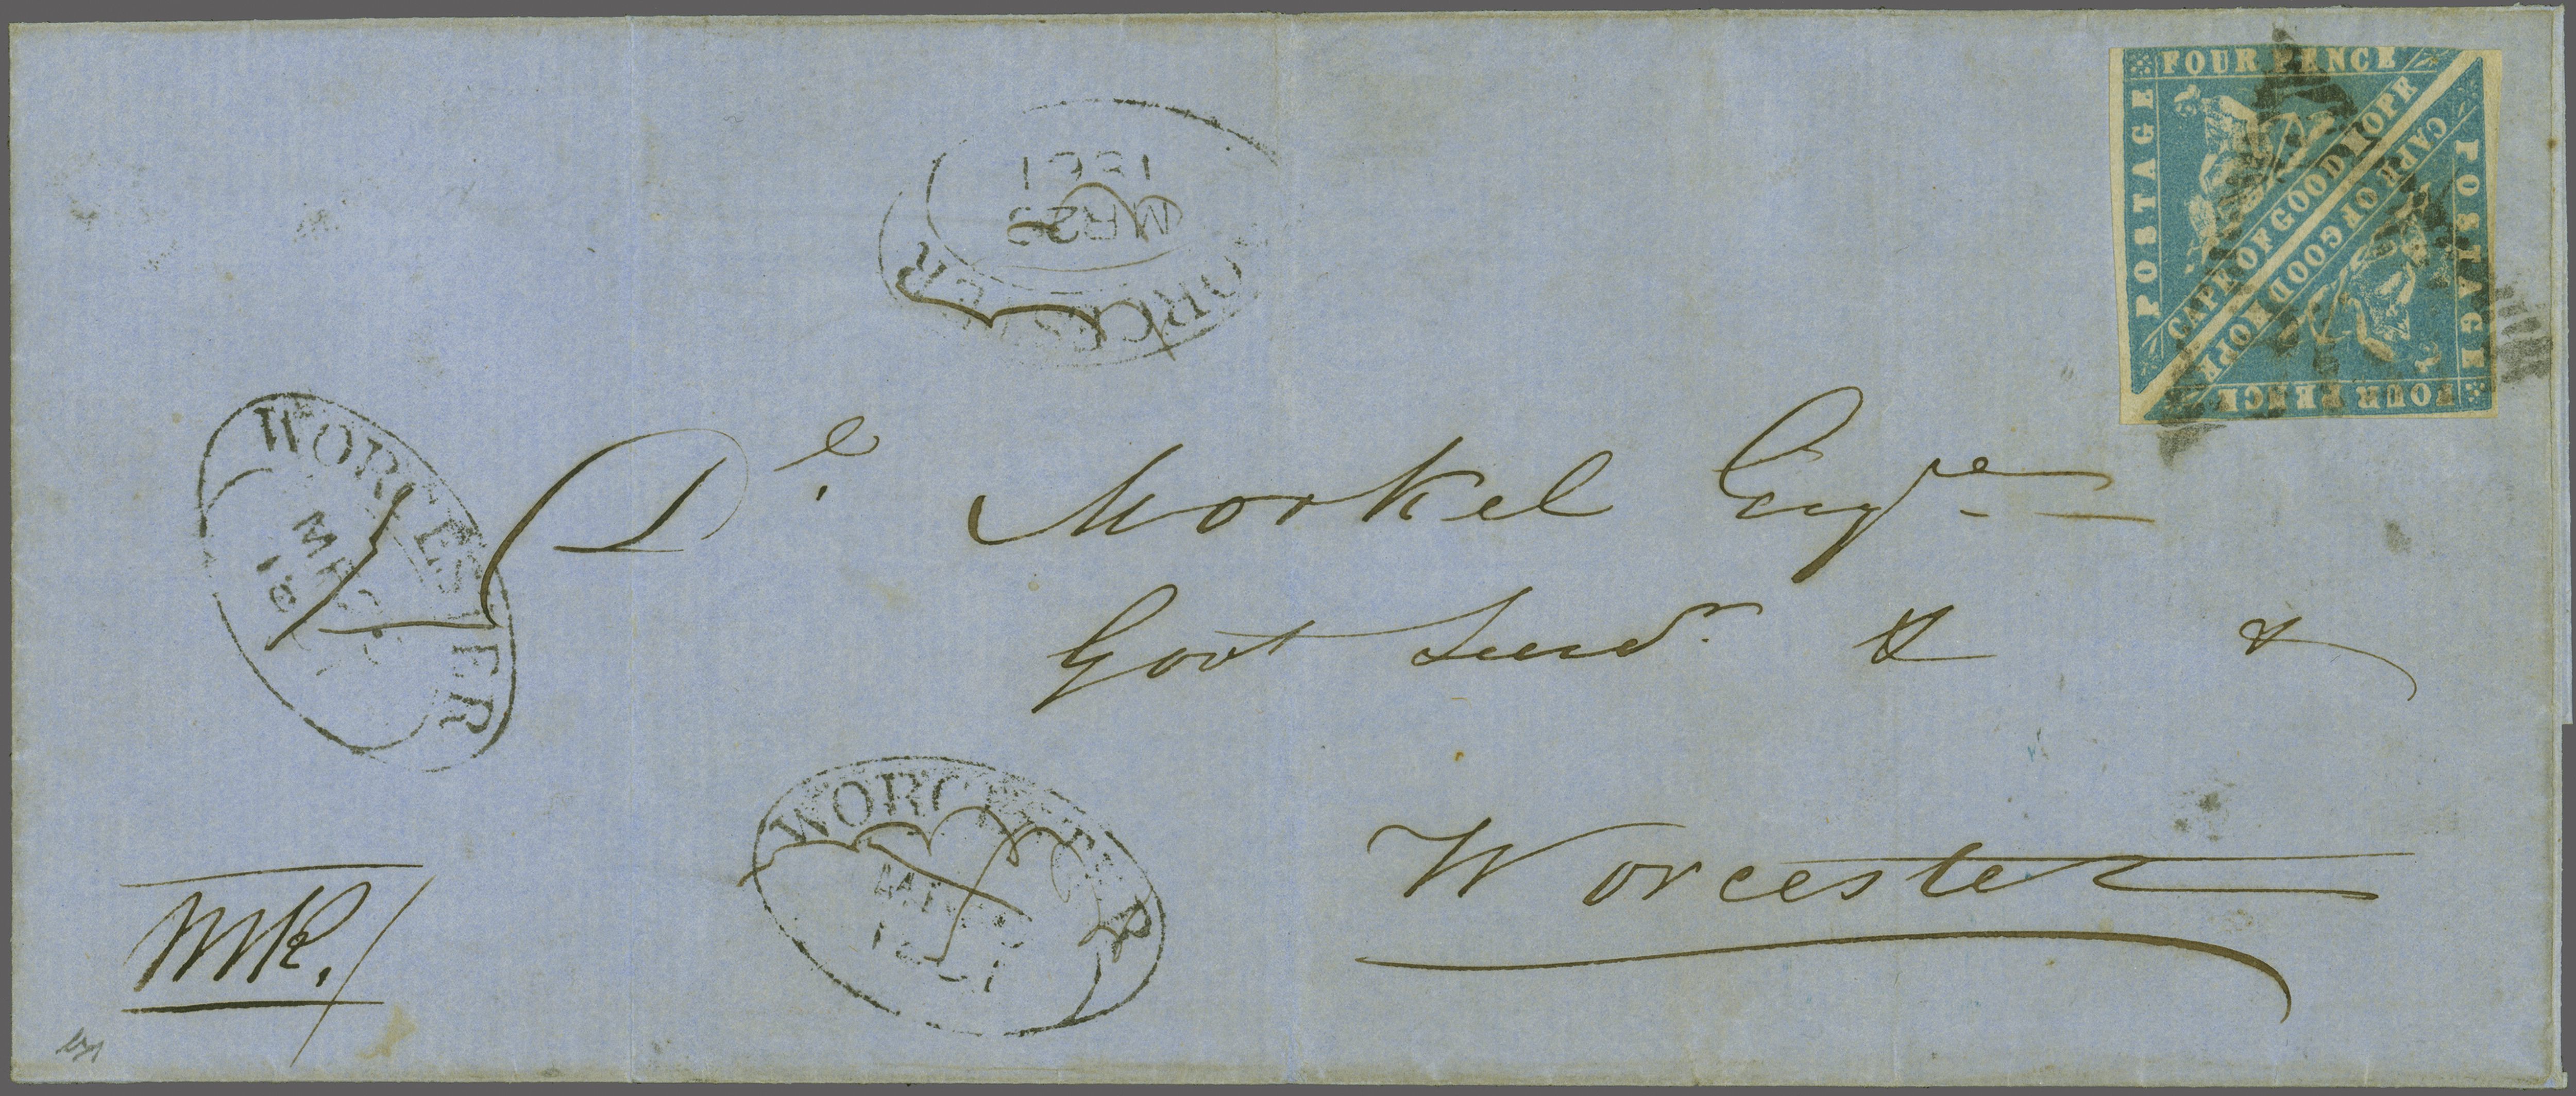 FOUR PENCE
POSTAGE
CAPE OF GOOD HOPE
CAPE OF GOOD HOPE
POSTAGE
FOUR PENCE
WORCESTER
MR 22
1861
WORCESTER
MR
18
De Morkel Esqre
Govt Survr & &
WORCESTER
Worcester
MR./